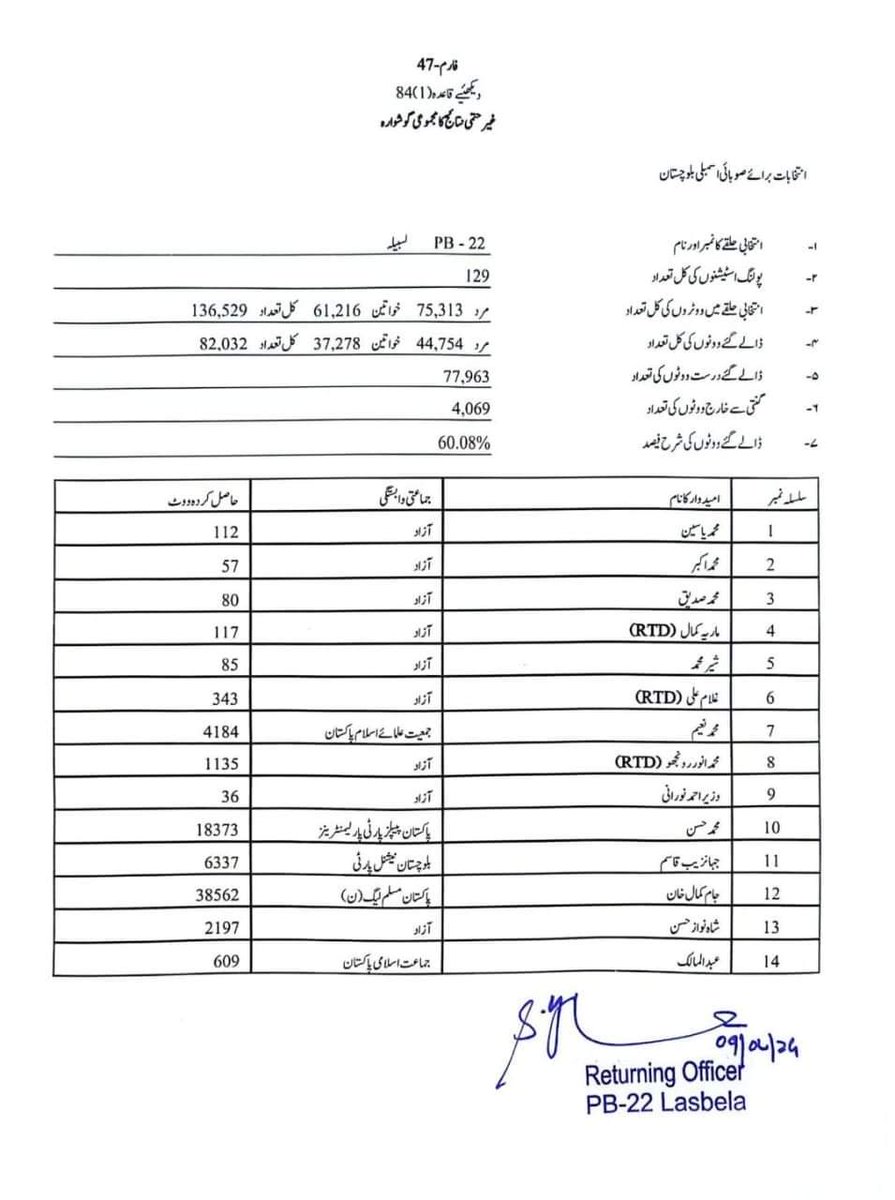 فارم-47
دیکھئیے قاعدہ (1)84
غیر حتمی نتائج کا مجموعی گوشوارہ
انتخابات برائے صوبائی اسمبلی بلوچستان
۱- انتخابی حلقے کا نمبر اور نام PB - 22 لسبیلہ
۲- پولنگ اسٹیشنوں کی کل تعداد 129
۳- انتخابی حلقے میں ووٹروں کی کل تعداد مرد 75,313 خواتین 61,216 کل تعداد 136,529
۴- ڈالے گئے ووٹوں کی کل تعداد مرد 44,754 خواتین 37,278 کل تعداد 82,032
۵- ڈالے گئے درست ووٹوں کی تعداد 77,963
۶- گنتی سے خارج ووٹوں کی تعداد 4,069
۷- ڈالے گئے ووٹوں کی شرح فیصد 60.08%
سلسلہ نمبر امیدوار کا نام جماعتی وابستگی حاصل کردہ ووٹ
1 محمد یاسین آزاد 112
2 محمد اکبر آزاد 57
3 محمد صدیق آزاد 80
4 ماریہ کمال (RTD) آزاد 117
5 شیر محمد آزاد 85
6 غلام علی (RTD) آزاد 343
7 محمد نعیم جمعیت علمائے اسلام پاکستان 4184
8 محمد انور رونجھو (RTD) آزاد 1135
9 وزیر احمد نورانی آزاد 36
10 محمد حسن پاکستان پیپلز پارٹی پارلیمنٹرینز 18373
11 جہانزیب قاسم بلوچستان نیشنل پارٹی 6337
12 جام کمال خان پاکستان مسلم لیگ (ن) 38562
13 شاہ نواز حسن آزاد 2197
14 عبدالمالک جماعت اسلامی پاکستان 609
09/02/24
Returning Officer
PB-22 Lasbela